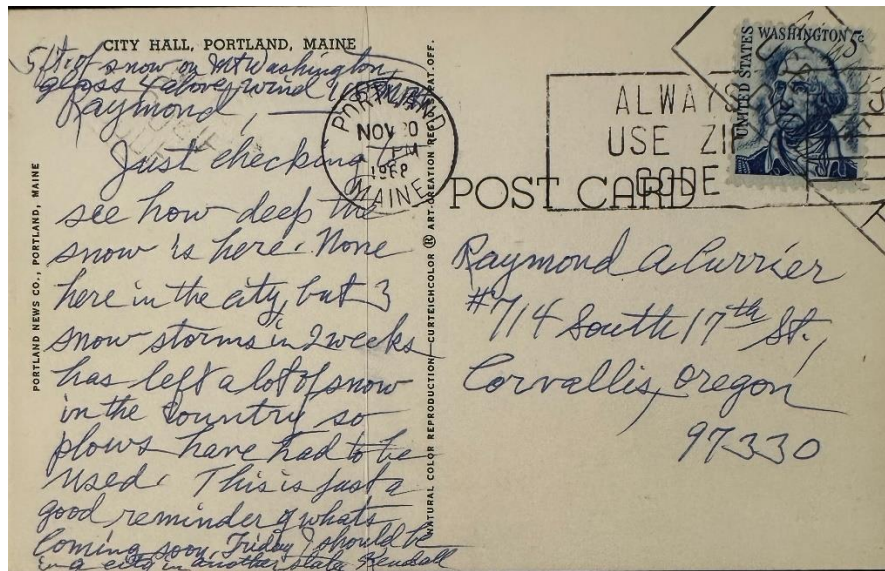 CITY HALL, PORTLAND, MAINE
5 ft. of snow on Mt Washington,
glass 4 above, wind
Raymond,
Just checking to
see how deep the
snow is here. None
here in the city, but 3
snow storms in 2 weeks
has left a lot of snow
in the country so
plows have had to be
used. This is just a
good reminder of whats
coming soon. Friday I should be
in a city in another state. Kendall
PORTLAND NEWS CO., PORTLAND, MAINE
NATURAL COLOR REPRODUCTION—CURTEICHCOLOR ® ART-CREATION REG. U.S. PAT. OFF.
PORTLAND
NOV 20
PM
1968
MAINE
ALWAYS
USE ZIP
CODE
UNITED STATES
WASHINGTON 5c
POST CARD
Raymond A. Currier
#714 South 17th St.,
Corvallis, Oregon
97330